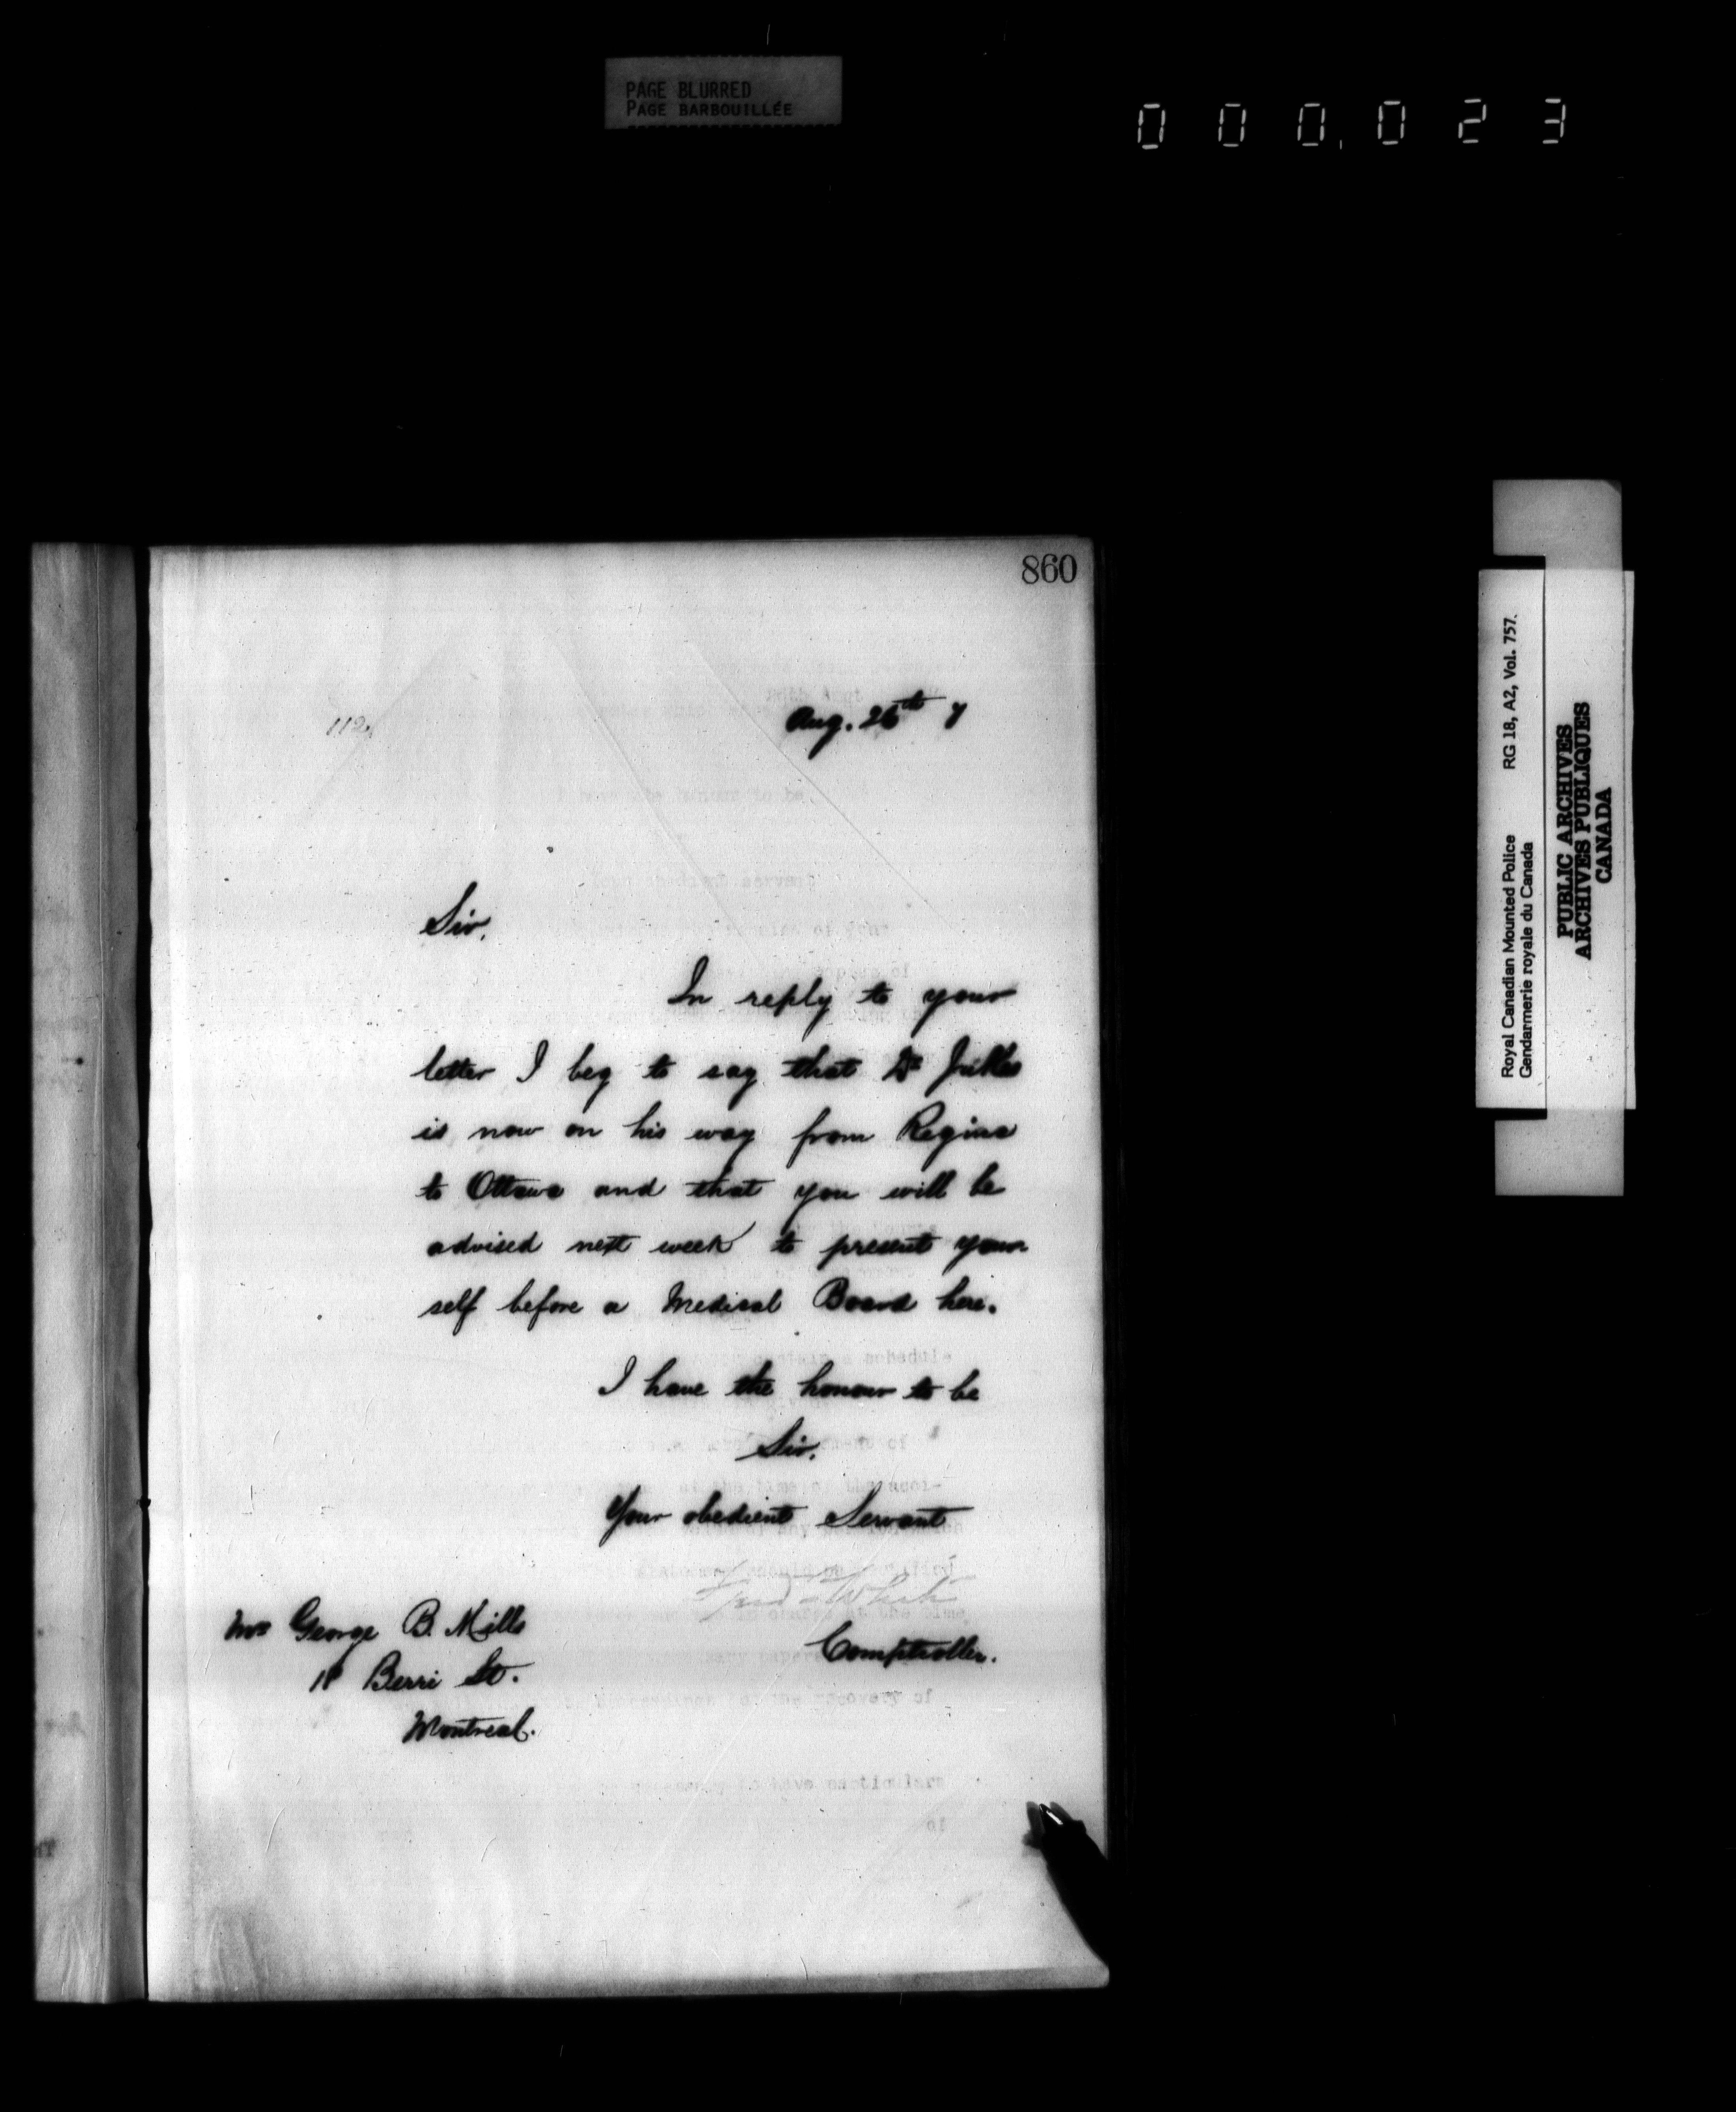 PAGE BLURRED
PAGE BARBOUILLÉE
000,023
860
112
Aug. 26th 7
Sir,
In reply to your
letter I beg to say that Dr Jukes
is now on his way from Regina
to Ottawa and that you will be
advised next week to present your
self before a Medical Board here.
I have the honour to be
Sir,
Your obedient Servant
Fred White
Comptroller.
Mr George B. Mills
18 Berri St.
Montreal.
Royal Canadian Mounted Police RG 18, A2, Vol. 757.
Gendarmerie royale du Canada
PUBLIC ARCHIVES
ARCHIVES PUBLIQUES
CANADA